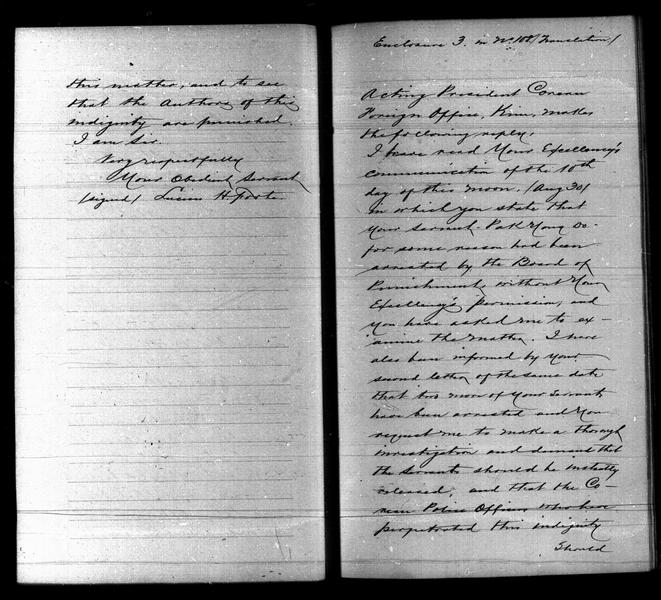 this matter, and to see
that the Authors of this
indignity are punished.
I am Sir.
Very respectfully
Your Obedient Servant
(signed) Lucius H. Foote
Enclosure 3. in No. 108 (Translation)
Acting President Corean
Foreign Office, Kim, makes
the following reply.
I have read Your Excellency's
communication of the 10th
day of this moon, (Aug 30)
in which you state that
your servant Pak Yong
for some reason had been
arrested by the Board of
Punishment, without Your
Excellency's permission, and
you have asked me to ex-
amine the matter. I have
also been informed by your
second letter of the same date
that two more of your servants
have been arrested and you
request me to make a thorough
investigation and demand that
the servants should be instantly
released, and that the Co-
rean Police Officers who have
perpetrated this indignity
should